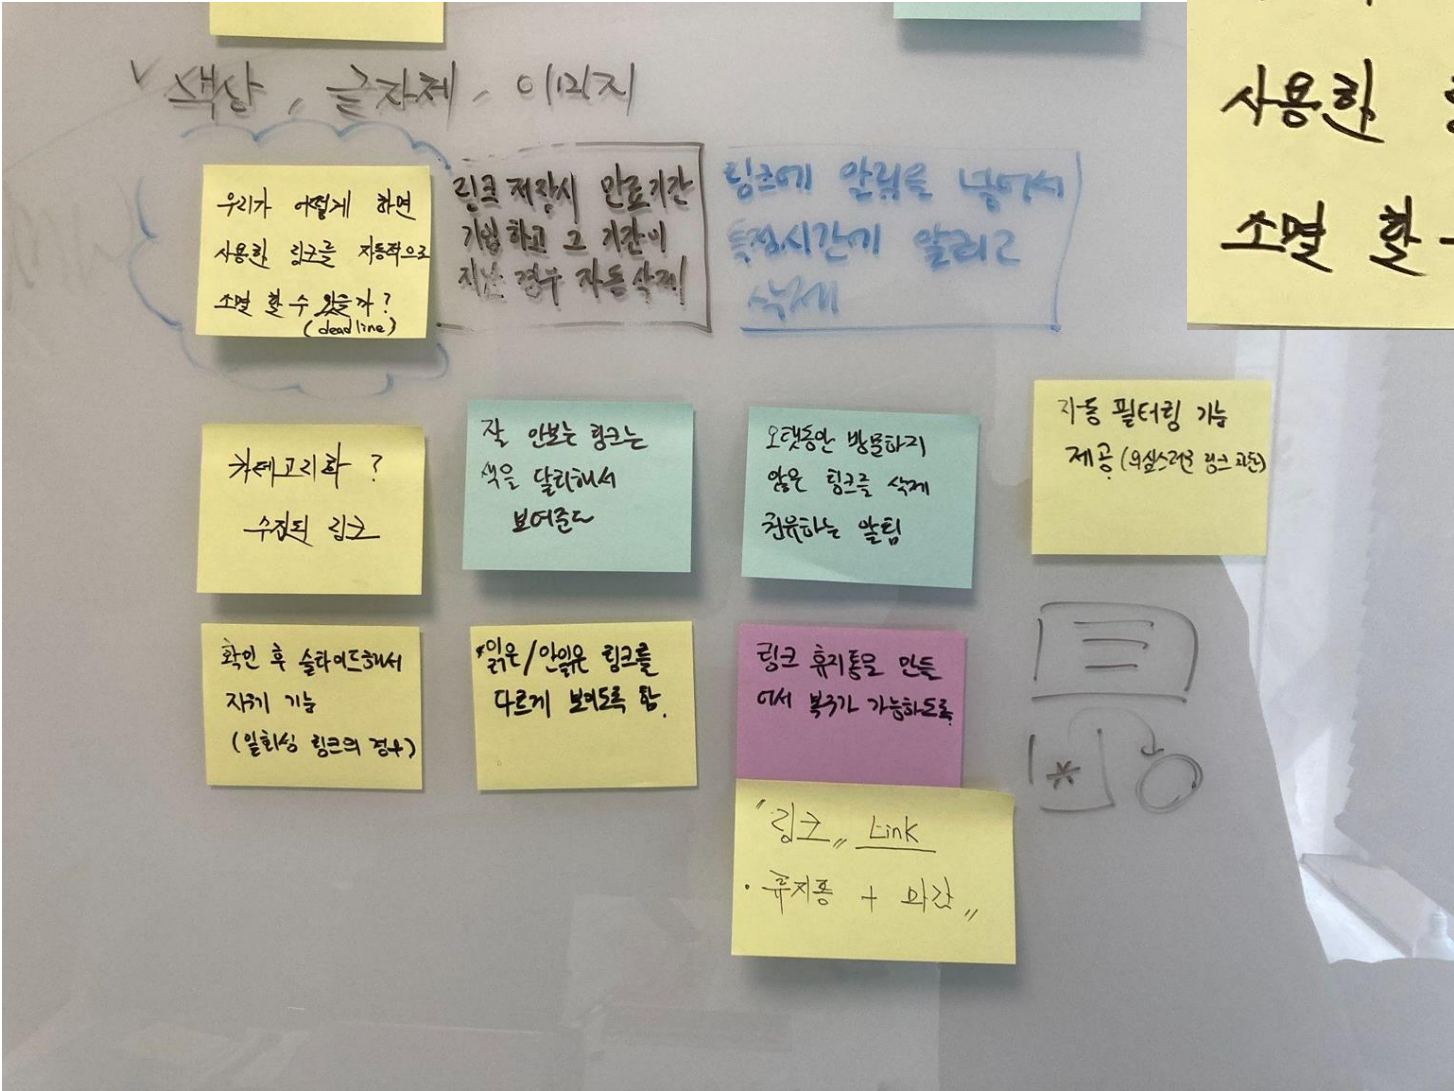 색상, 글자체, 이미지
우리가 어떻게 하면
사용한 링크를 자동적으로
소멸 할 수 있을까?
(deadline)
링크 저장시 만료기간
기입하고 그 기간이
지난 경우 자동삭제
링크에 알림을 넣어서
특정시간에 알리고
삭제
사용한
소멸 할
카테고리화 ?
수집된 링크
잘 안보는 링크는
색을 달리해서
보여준다
오랫동안 방문하지
않은 링크를 삭제
권유하는 알림
자동 필터링 기능
제공 (의심스러운 링크 차단)
확인 후 슬라이드해서
지우기 기능
(일회성 링크의 경우)
*읽은/안읽은 링크를
다르게 보이도록 함.
링크 휴지통을 만들
어서 복구가 가능하도록
"링크" Link
· 휴지통 +